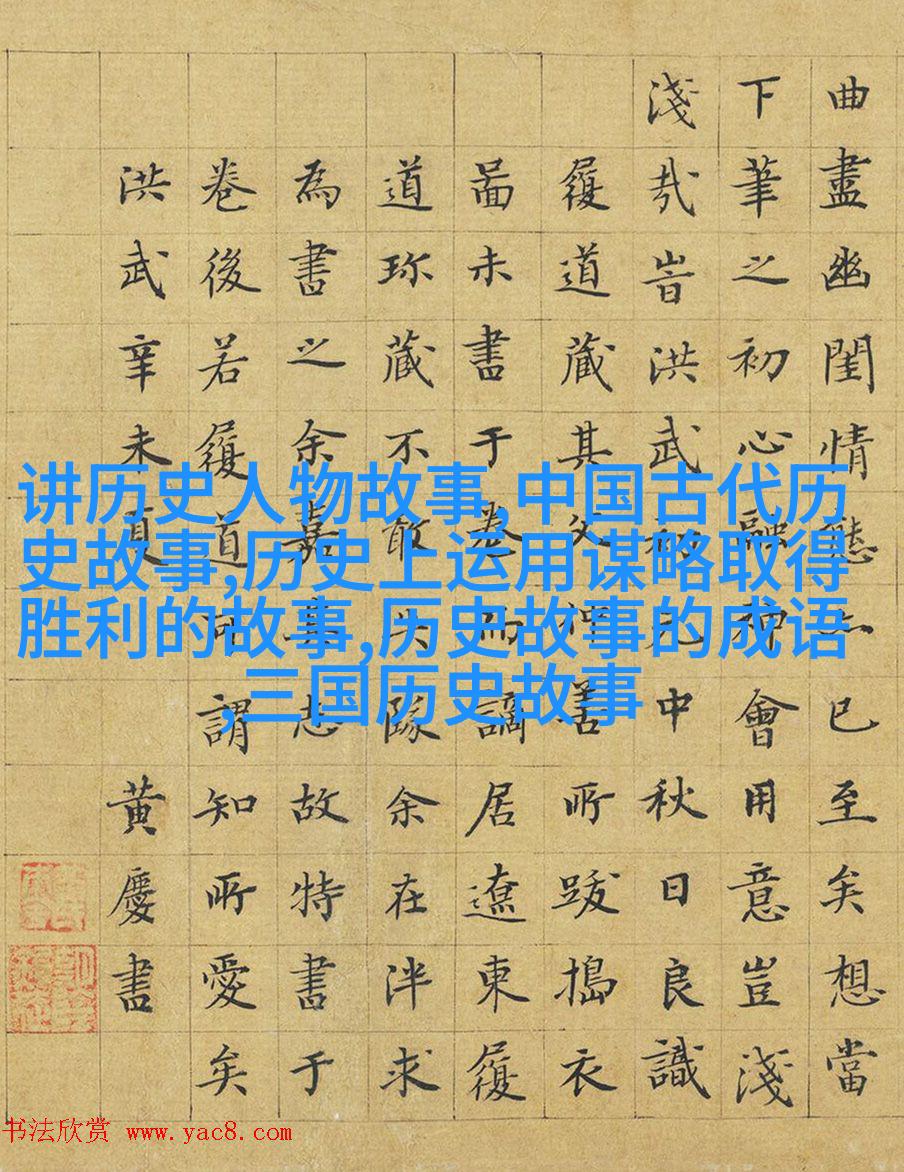 讲历史人物故事,中国古代历
史故事,历史上运用谋略取得
胜利的故事,历史故事的成语
,三国历史故事
曲盡幽閨情態已至矣想當
下筆之初心融神會用意豈淺
淺哉旹洪武元中秋日良識
履道藏其父善所跋搗衣
啚未書于卷而謫居遼東履
道珎藏不敢失隊余在泮求
為書之余嘉其志故特書于
卷後若履道可謂知所愛矣
洪武辛未夏黄慶書
书法欣赏 www.yac8.com